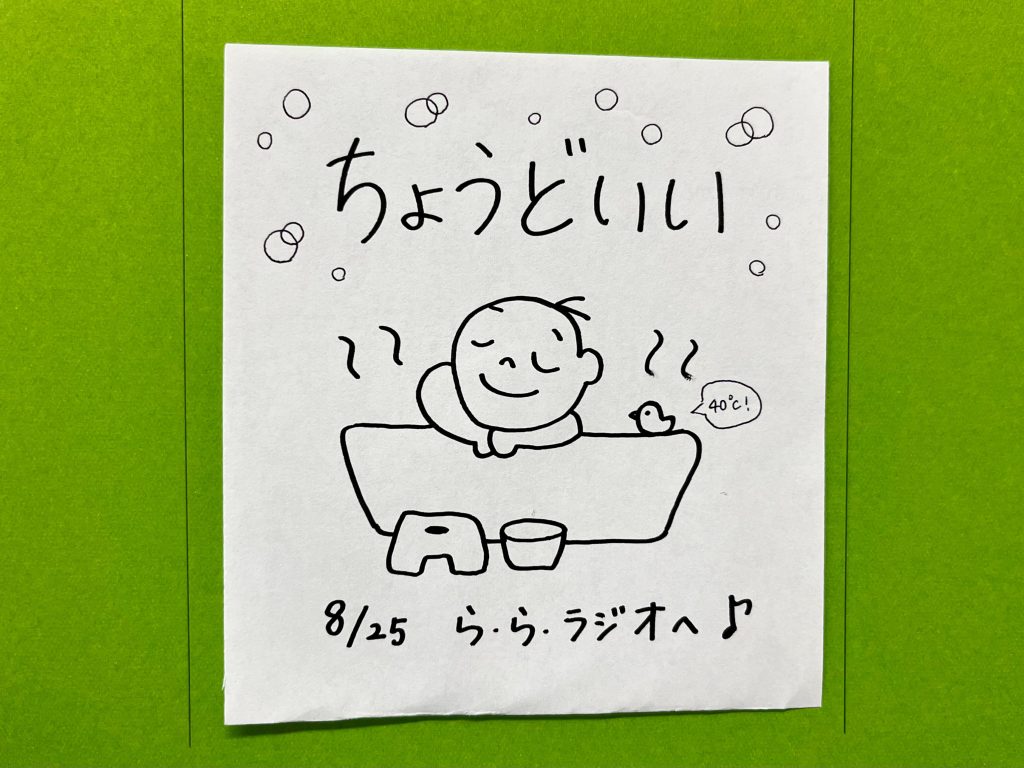 ちょうどいい
40℃!
8/25 ら・ら・ラジオへ♪